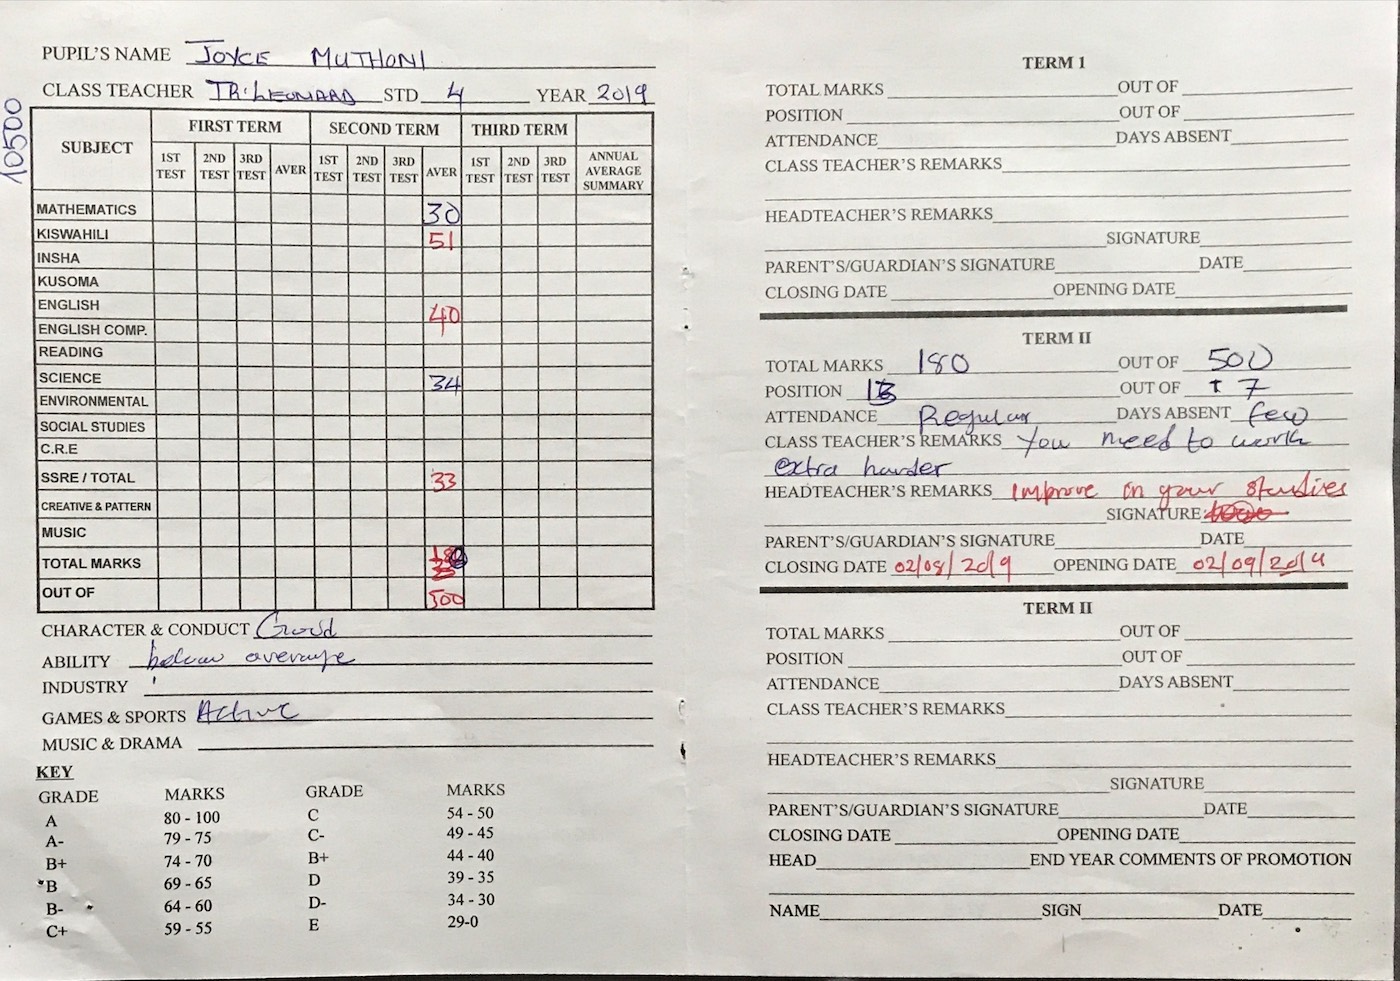 PUPIL'S NAME JOYCE MUTHONI
CLASS TEACHER TR. LEONARD STD 4 YEAR 2019
10500
SUBJECT FIRST TERM SECOND TERM THIRD TERM ANNUAL AVERAGE SUMMARY
1ST TEST 2ND TEST 3RD TEST AVER 1ST TEST 2ND TEST 3RD TEST AVER 1ST TEST 2ND TEST 3RD TEST
MATHEMATICS 30
KISWAHILI 51
INSHA
KUSOMA
ENGLISH 40
ENGLISH COMP.
READING
SCIENCE 34
ENVIRONMENTAL
SOCIAL STUDIES
C.R.E
SSRE / TOTAL 33
CREATIVE & PATTERN
MUSIC
TOTAL MARKS
OUT OF 500
CHARACTER & CONDUCT Good
ABILITY below average
INDUSTRY
GAMES & SPORTS Active
MUSIC & DRAMA
KEY
GRADE MARKS GRADE MARKS
A 80 - 100 C 54 - 50
A- 79 - 75 C- 49 - 45
B+ 74 - 70 B+ 44 - 40
B 69 - 65 D 39 - 35
B- 64 - 60 D- 34 - 30
C+ 59 - 55 E 29-0
TERM I
TOTAL MARKS OUT OF
POSITION OUT OF
ATTENDANCE DAYS ABSENT
CLASS TEACHER'S REMARKS
HEADTEACHER'S REMARKS
SIGNATURE
PARENT'S/GUARDIAN'S SIGNATURE DATE
CLOSING DATE OPENING DATE
TERM II
TOTAL MARKS 180 OUT OF 500
POSITION OUT OF
ATTENDANCE Regular DAYS ABSENT few
CLASS TEACHER'S REMARKS You need to work
extra harder
HEADTEACHER'S REMARKS Improve on your studies
SIGNATURE
PARENT'S/GUARDIAN'S SIGNATURE DATE
CLOSING DATE 02/08/2019 OPENING DATE 02/09/2019
TERM II
TOTAL MARKS OUT OF
POSITION OUT OF
ATTENDANCE DAYS ABSENT
CLASS TEACHER'S REMARKS
HEADTEACHER'S REMARKS
SIGNATURE
PARENT'S/GUARDIAN'S SIGNATURE DATE
CLOSING DATE OPENING DATE
HEAD END YEAR COMMENTS OF PROMOTION
NAME SIGN DATE